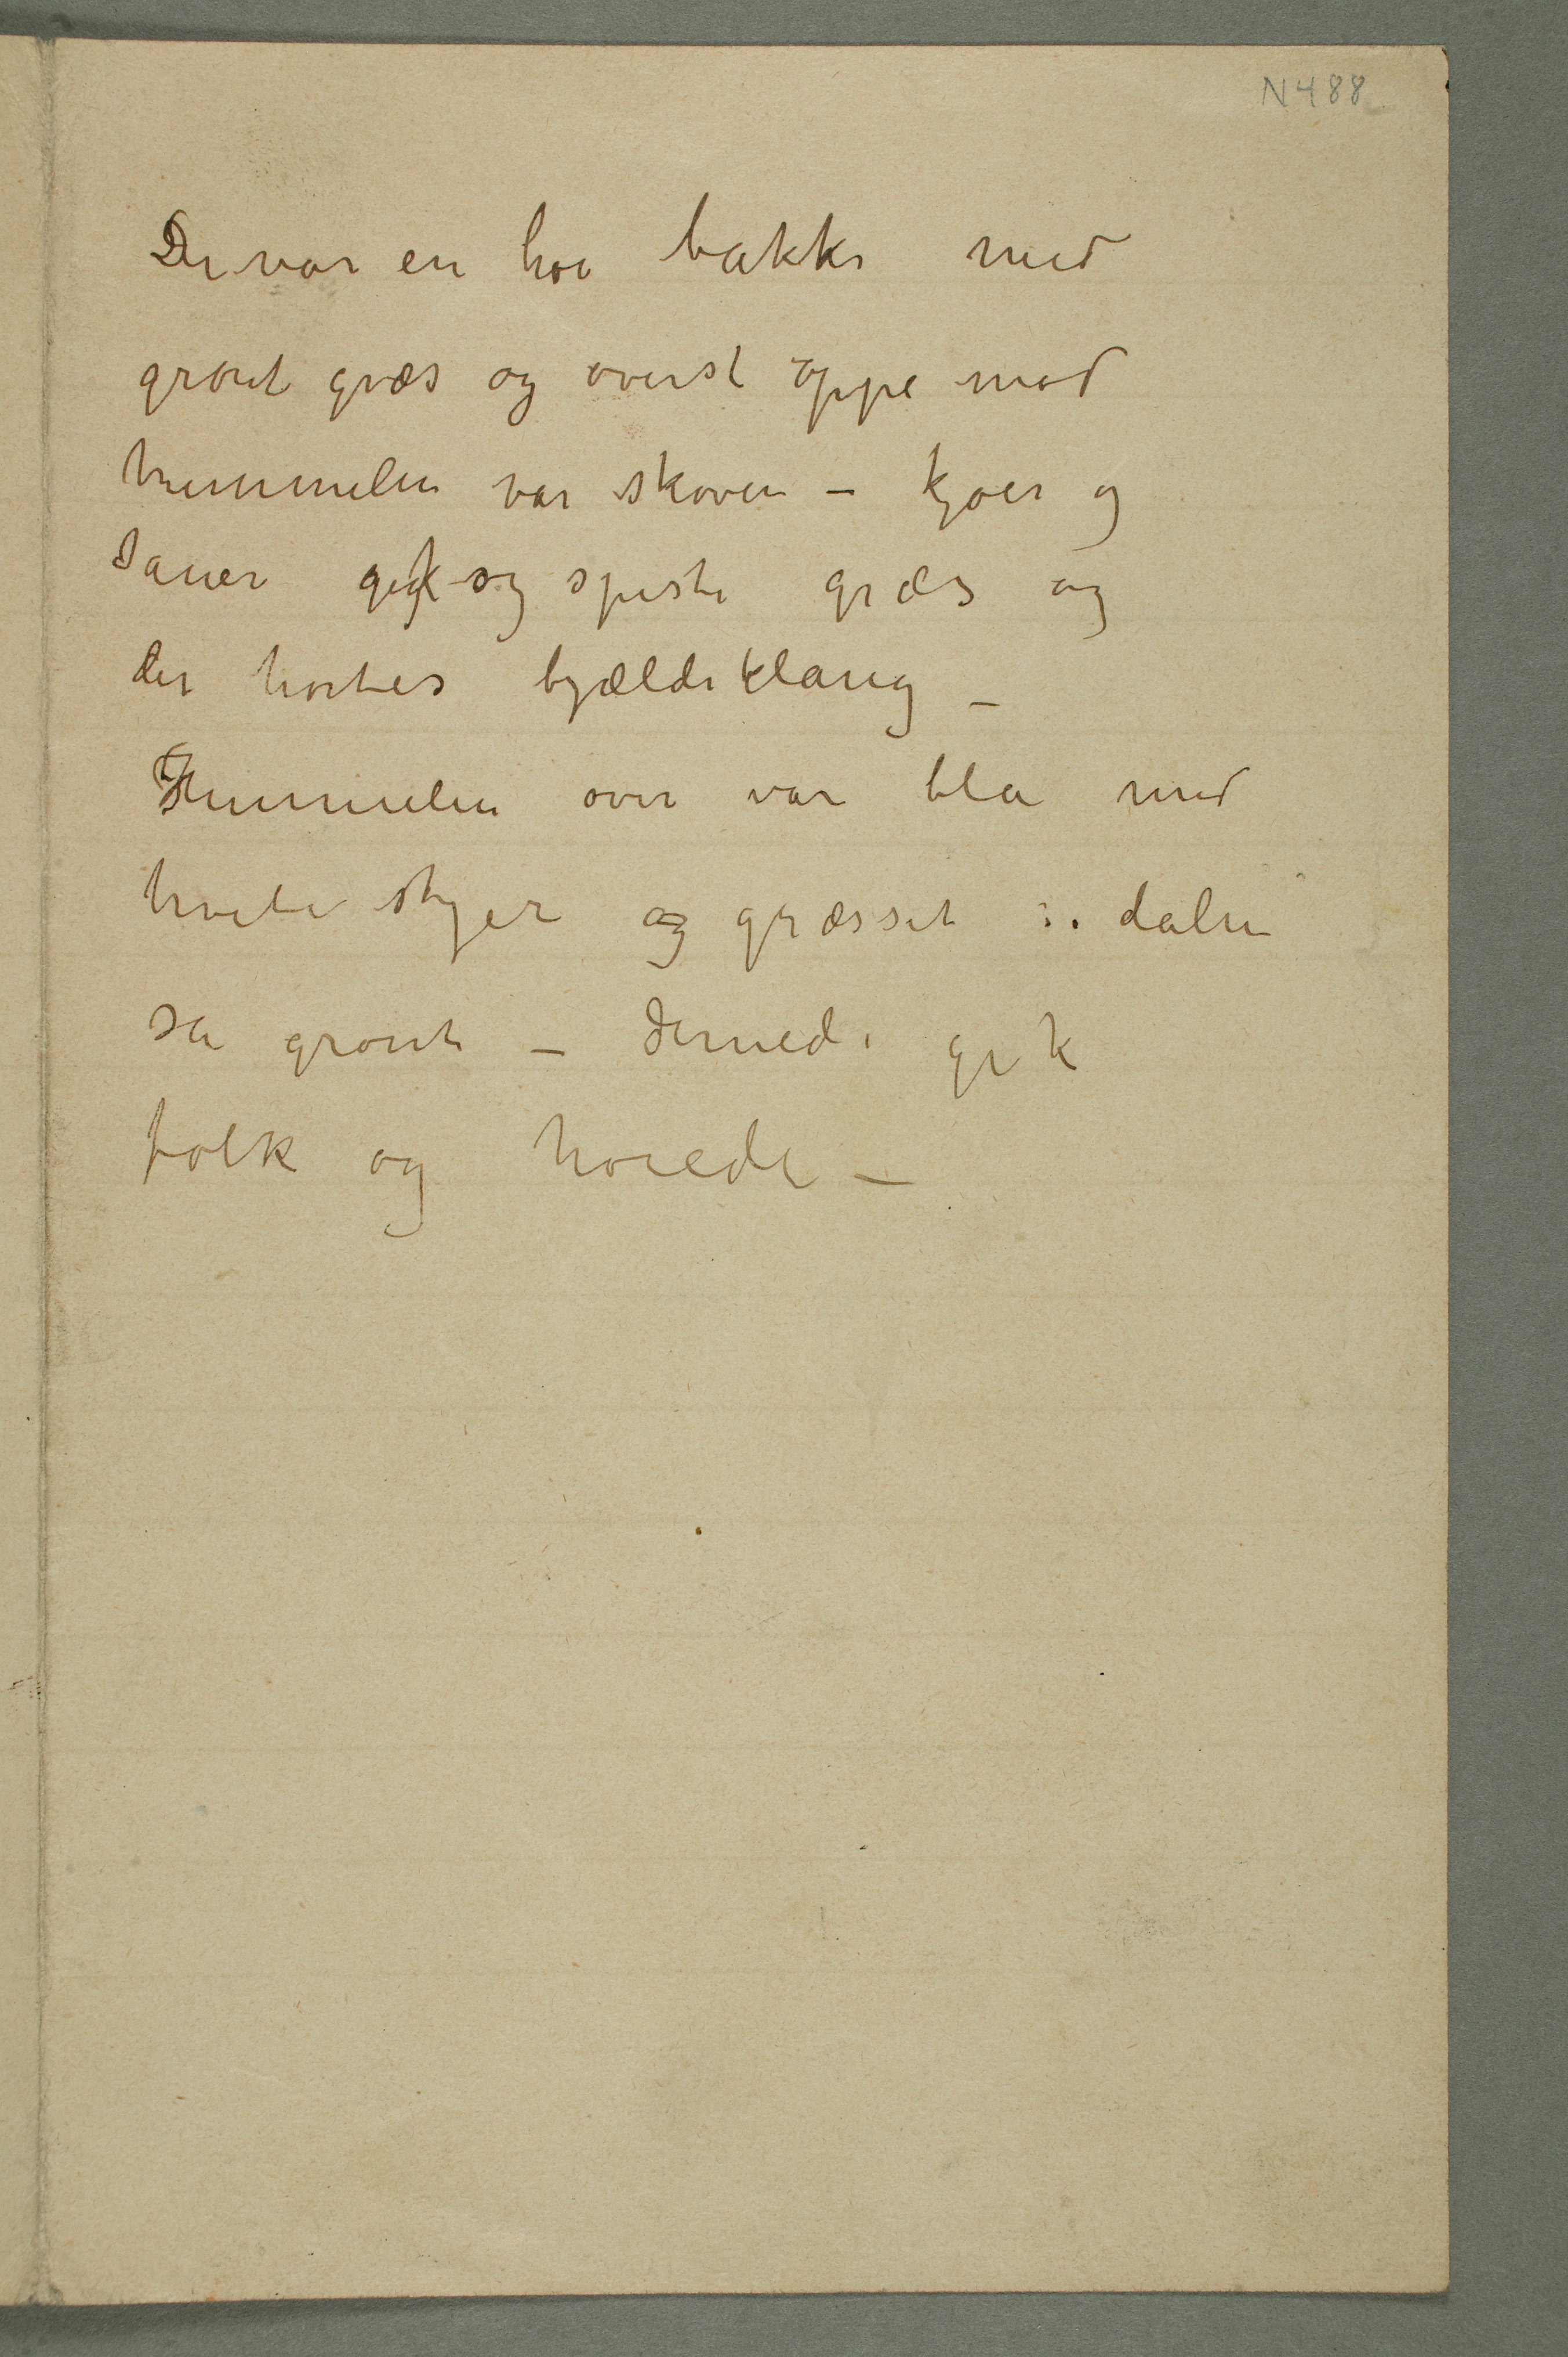 N488
Der var en høi bakke med
grønt græs og øverst oppe mod
himmelen var skoven – kjøer og
sauer gik og spiste græs og
der hørtes bjældeklang –
Himmelen over var bla med
hvide skyer og græsset i dalen
sa grønt – dernede gik
folk og høiede –